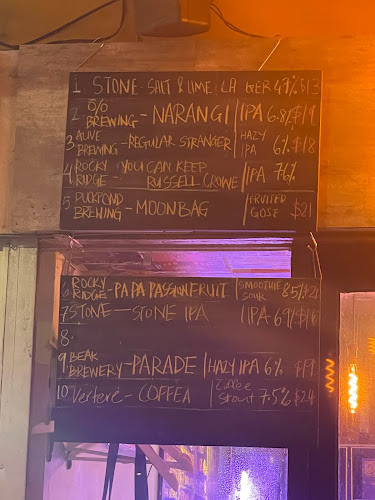 1 STONE - SALT & LIME | LAGER 4.7% $13
2 5/0 BREWING - NARANGI | IPA 6.8% $19
3 ALIVE BREWING - REGULAR STRANGER | HAZY IPA 6% $18
4 ROCKY RIDGE - YOU CAN KEEP RUSSELL CROWE | IPA 7.6%
5 DUCKPOND BREWING - MOONBAG | FRUITED GOSE $21
6 ROCKY RIDGE - PAPA PASSIONFRUIT | SMOOTHIE SOUR 8.5% $21
7 STONE - STONE IPA | IPA 6.9% $16
8.
9 BEAK BREWERY - PARADE | HAZY IPA 6% $19
10 Verteré - COFFEA | Coffee Stout 7.5% $24